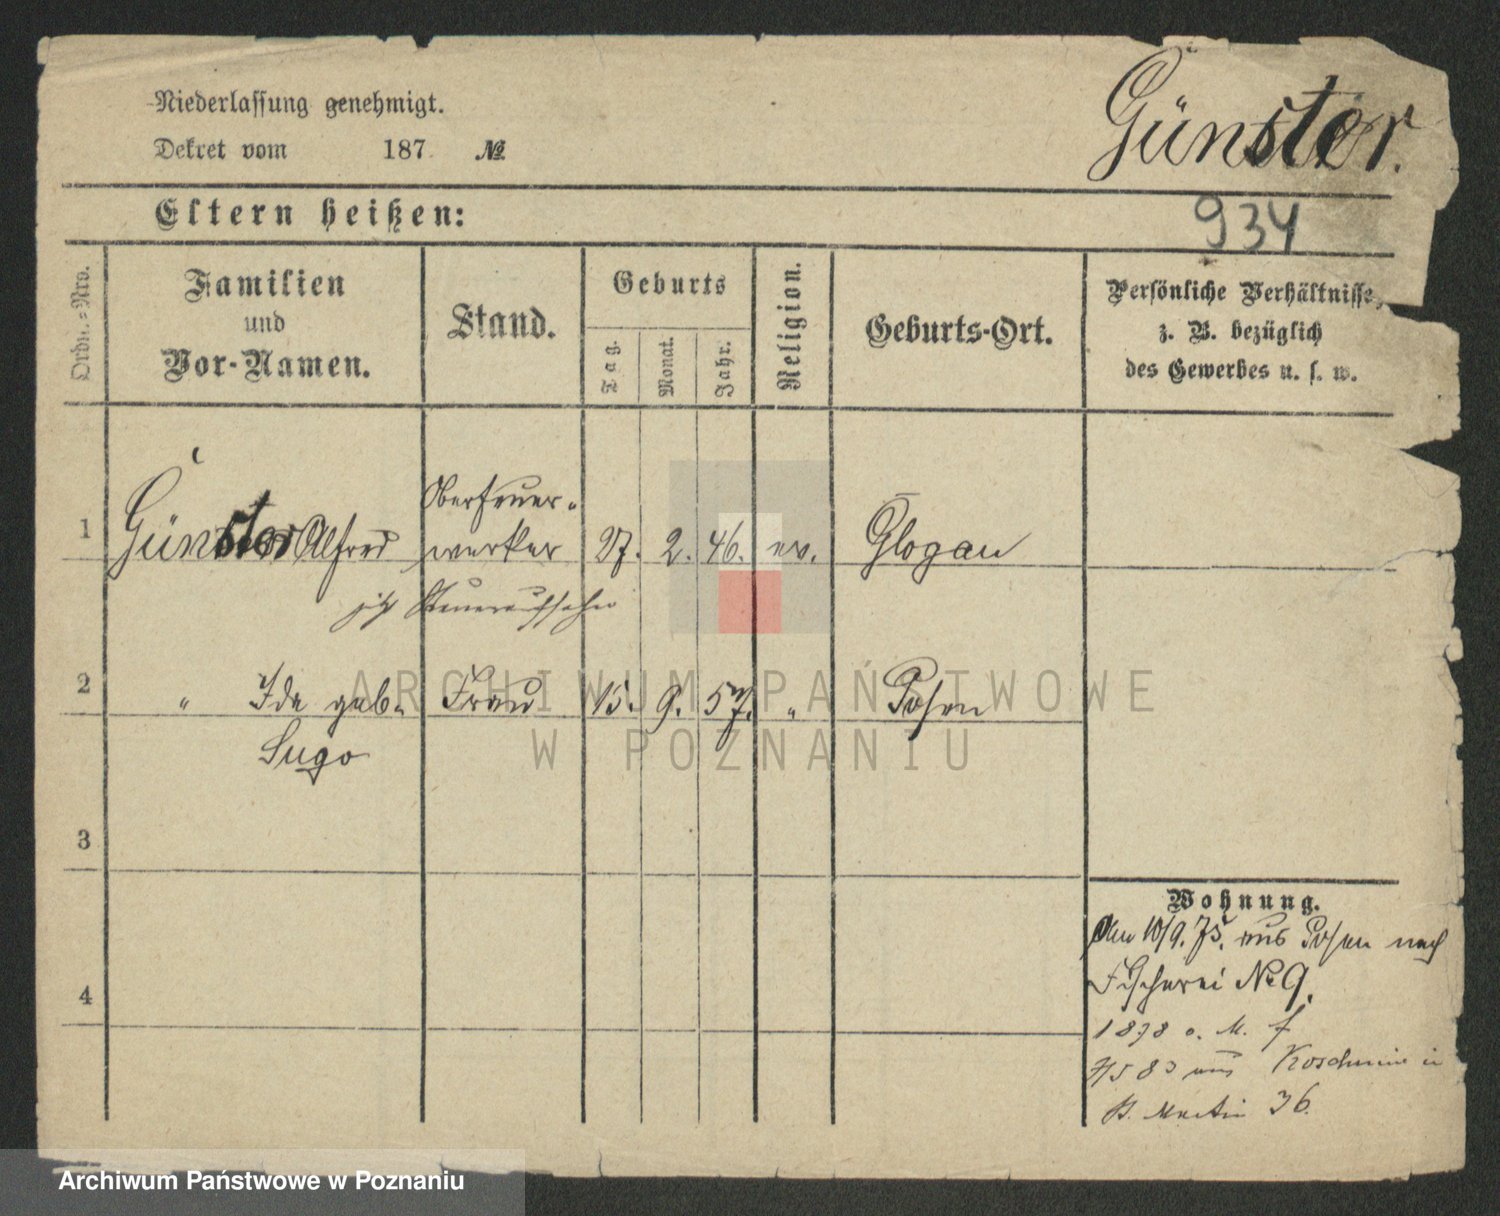 Niederlassung genehmigt.
Dekret vom 187 №
Günster.
934
Eltern heißen:
Ordn.-Nro.
Familien
und
Vor-Namen.
Stand.
Geburts
Tag.
Monat.
Jahr.
Religion.
Geburts-Ort.
Persönliche Verhältnisse,
z. B. bezüglich
des Gewerbes u. s. w.
1 Günster Alfred Oberfeuer-
werker 27. 2. 46. ev. Glogau
jetzt Steueraufseher
2 " Ida geb. Frau 15. 9. 57. " Posen
Sugo
3
4
Wohnung.
10/9. 75. aus Posen nach
Fischerei № 9.
1878 o. M. f
583 aus Koschmin in
St. Martin 36.
ARCHIWUM PAŃSTWOWE
W POZNANIU
Archiwum Państwowe w Poznaniu